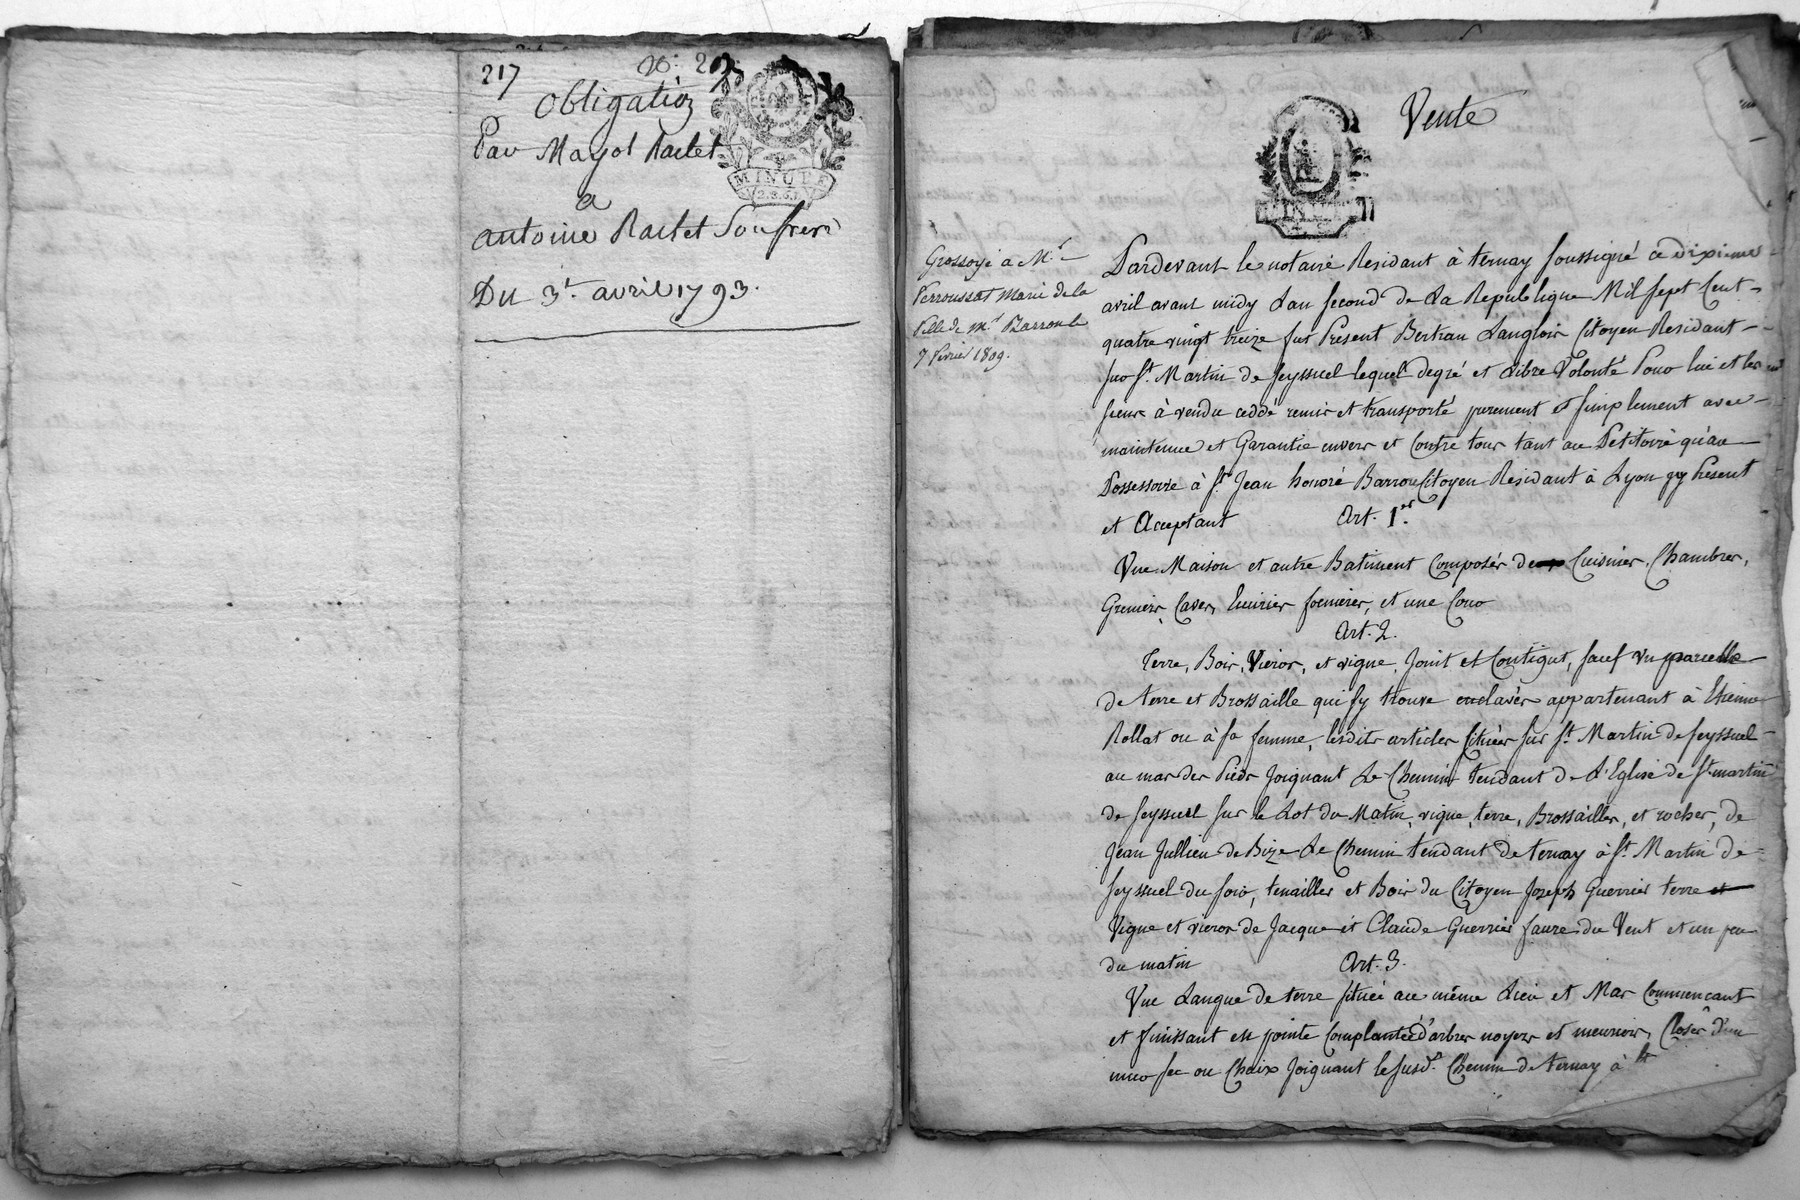 217
Obligation
Par Mayol Raclet
a
antoine Raclet Son frere
Du 3.e avril 1793.
MINUTE
Vente
Grossoyé a M.r
Perroussat Marie de la
fille de M.r Barrou le
7 fevrier 1809.
Pardevant le notaire Residant à ternay soussigné ce dixieme
avril avant midy L'an second de La Republique Mil sept Cent
quatre vingt treize fut Present Bertran Langlois Citoyen Residant
sur S.t Martin de seyssuel lequel de gré et Libre Volonté Pour lui et les
siens à vendu ceddé remis et transporté purement et simplement avec
maintenue et Garantie envers et Contre tous tant au Petitoire qu'au
Possessoire à S.r Jean honoré Barrou Citoyen Residant à Lyon cy Present
et Acceptant
Art. 1.er
Une Maison et autre Batiment Composés de Cuisines, Chambres,
Greniers, Caves, Ecuries, fenieres, et une Cour
Art. 2.
Terre, Bois, Vieros, et vigne, Joint et Contigut, sauf un parcelle
de terre et Brossaille qui s'y trouve enclavés appartenant à Etienne
Rollat ou à sa femme, lesdits articles situées sur S.t Martin de seyssuel
au mas des Pieds Joignant Le Chemin tendant de L'Eglise de S.t martin
de seyssuel sur le Lot du Matin, vigne, terre, Brossailles, et rocher, de
Jean Jullien de Bize Le Chemin tendant de ternay à S.t Martin de
seyssuel du soir, tenailles et Bois du Citoyen Joseph Guerrier terre et
Vigne et vieros de Jacque et Claude Guerrier faure du Vent et un peu
du matin
Art. 3.
Une Langue de terre située au même Lieu et Mas Commencant
et finissant en pointe Complantée d'arbres noyers et meuriers, Close d'un
mur sec ou Choix Joignant le susd.t Chemin de ternay à S.t